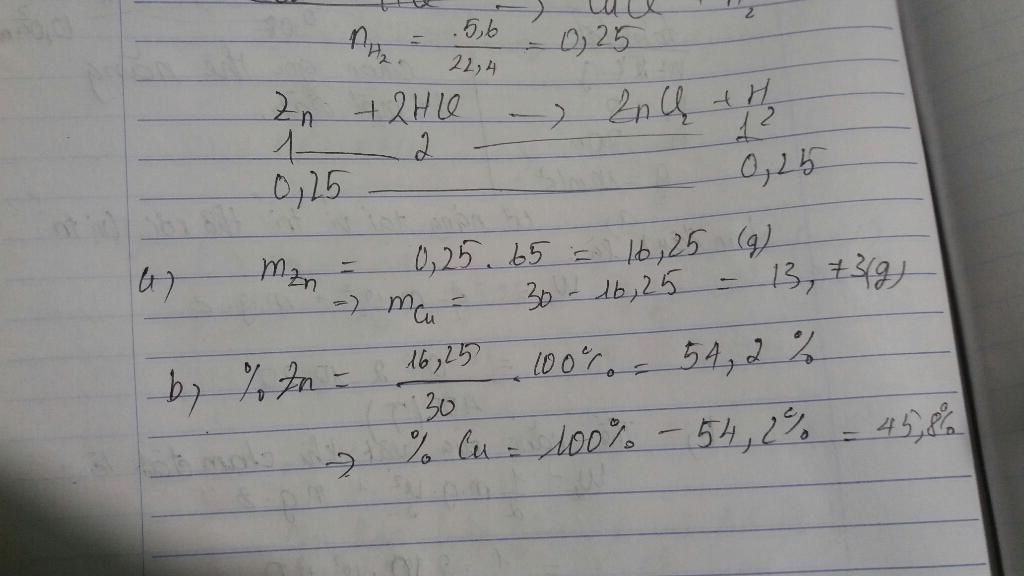 n_H₂ = 5,6/22,4 = 0,25
Zn + 2HCl → ZnCl₂ + H₂
1 — 2 — 1
0,25 — 0,25
a) m_Zn = 0,25 . 65 = 16,25 (g)
=> m_Cu = 30 - 16,25 = 13,73(g)
b) % Zn = 16,25/30 . 100% = 54,2 %
→ % Cu = 100% - 54,2% = 45,8%